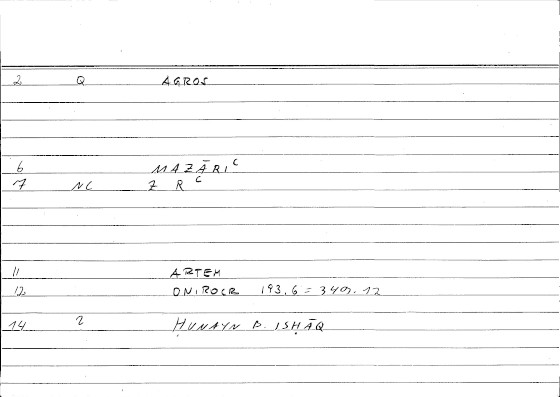 2 Q AGROS
6 MAZĀRIᶜ
7 NC Z R ᶜ
11 ARTEM
12 ONIROCR 193,6 = 340, 12
14 2 ḤUNAYN B. ISḤĀQ